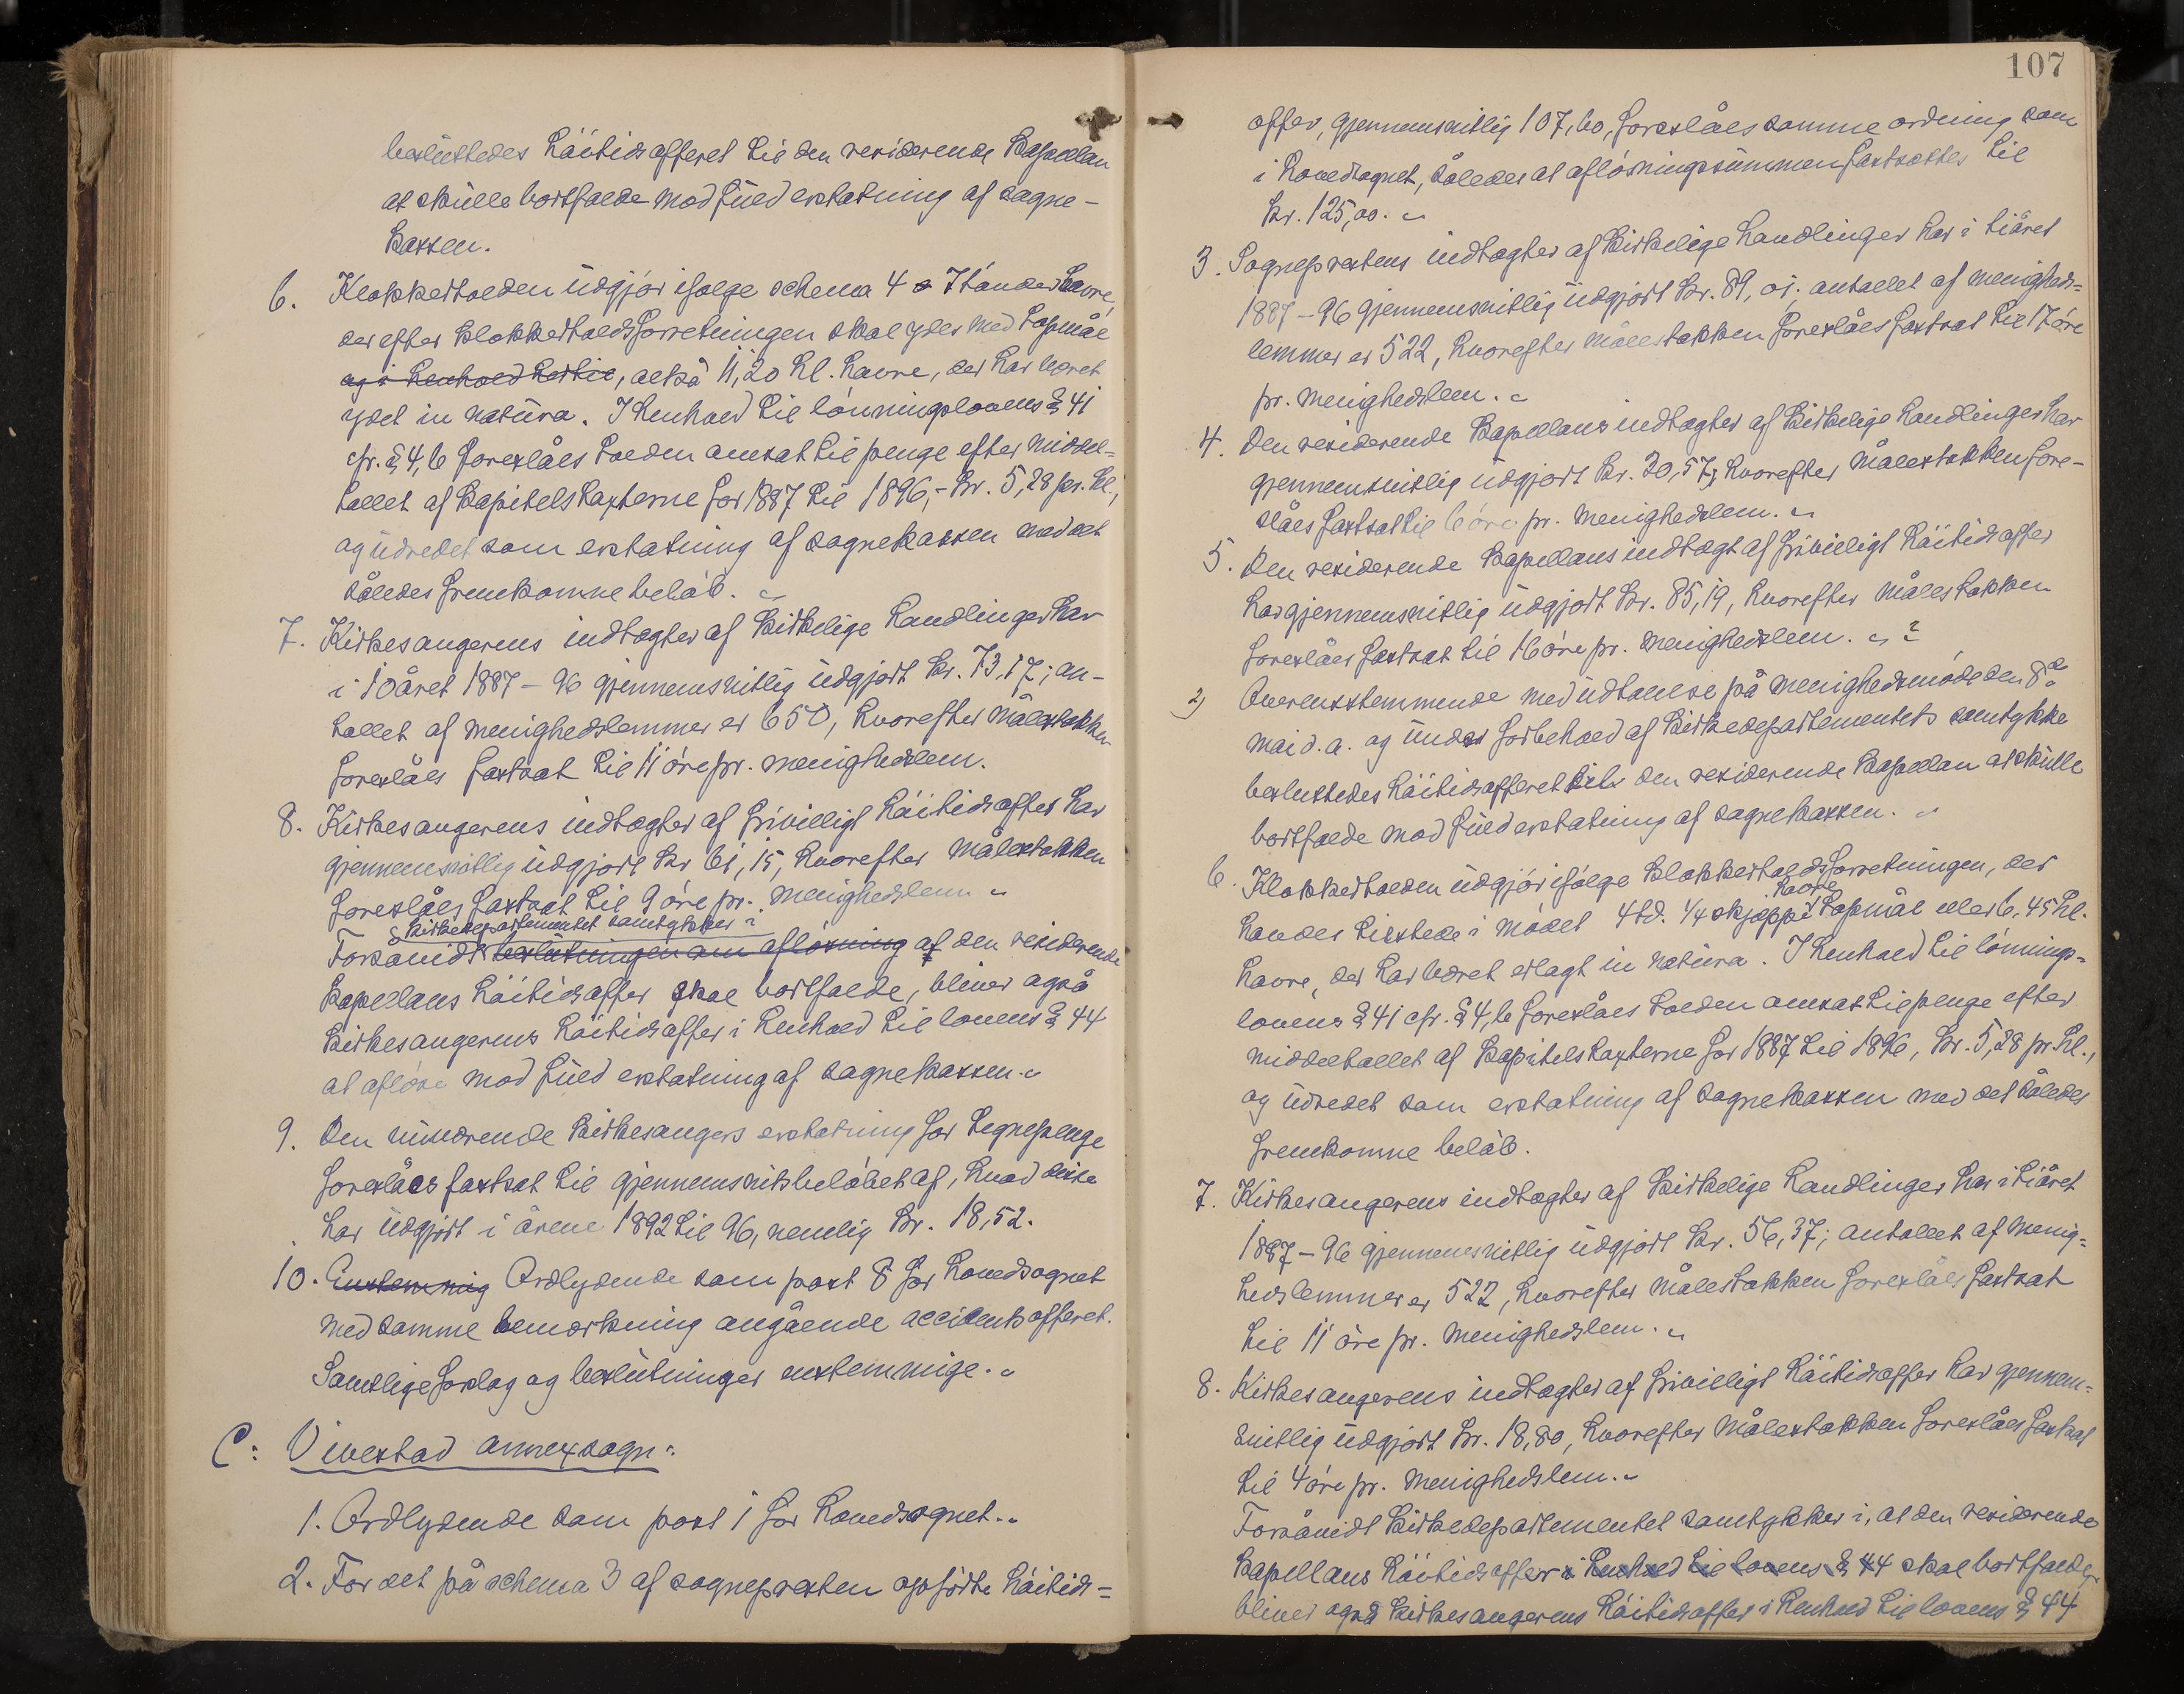 besluttedes höitidsofferet til den residerende kapellan
at skulle bortfalde mod fuld erstatning af sogne-
kassen.
6. Klokkertolden udgjør ifølge schema 4 7 tönder havre,
der efter klokkertoldsforretningen skal ydes med topmål
og i henhold hertil, altså 11,20 hl. havre, der har været
ydet in natura. I henhold til lönningslovens § 41
cfr. § 4, b foreslåes tolden omsat til penge efter middel=
tallet af kapitelstaxterne for 1887 til 1896,- kr. 5,28 pr. hl.,
og udredet som erstatning af sognekassen med det
således fremkomne belöb.
7. Kirkesangerens indtægter af kirkelige handlinger har
i 10året 1887–96 gjennemsnitlig udgjort kr. 73,17; an-
tallet af menighedslemmer er 650, hvorefter målestokken
foreslåes fastsat til 11 öre pr. menighedslem.
8. Kirkesangerens indtægter af frivilligt höitidsoffer har
gjennemsnitlig udgjort kr 61,15, hvorefter målestokken
foreslåes fastsat til 9 öre pr. menighedslem
kirkedepartementet samtykker i
Forsåvidt beslutningen om aflösning af den residerende
kapellans höitidsoffer skal bortfalde, bliver også
kirkesangerens höitidsoffer i henhold til lovens § 44
at aflöse mod fuld erstatning af sognekassen.
9. Den nuværende kirkesangers erstatning for tegnepenge
foreslåes fastsat til gjennemsnitsbelöbet af, hvad disse
har udgjort i årene 1892 til 96, nemlig kr. 18,52.
10. Enstemmig Ordlydende som post 8 for hovedsognet
med samme bemærkning angående accidentsofferet.
Samtlige forslag og beslutninger enstemmige.
C: Vivestad annexsogn:
1. Ordlydende som post 1 for hovedsognet.
2. For det på schema 3 af sognepresten opförte höitids=
107
offer, gjennemsnitlig 107,60, foreslåes samme ordning som
i hovedsognet, således at aflösningssummen fastsættes til
kr. 125,00.
3. Sogneprestens indtægter af kirkelige handlinger har i tiåret
1887–96 gjennemsnitlig udgjort kr. 89,01; antallet af menigheds=
lemmer er 522, hvorefter målestokken foreslåes fastsat til 17 öre
pr. menighedslem.
4. Den residerende kapellans indtægter af kirkelige handlinger har
gjennemsnitlig udgjort kr. 30,57, hvorefter målestokken fore-
slåes fastsat til 6 öre pr. menighedslem.
5. Den residerende kapellans indtægt af frivilligt höitidsoffer
har gjennemsnitlig udgjort kr. 85,19, hvorefter målestokken
foreslåes fastsat til 16 öre pr. menighedslem. 2
2) Overensstemmende med udtalelse på menighedsmöde den 8de
mai d.a. og under forbehold af kirkedepartementets samtykke
besluttedes höitidsofferet til den residerende kapellan at skulle
bortfalde mod fuld erstatning af sognekassen.
6. Klokkertolden udgjör ifölge klokkertoldsforretningen, der
havre
havdes tilstede i mödet 4 td. 1/4 skjæppe topmål eller 6.45 hl.
havre, der har været erlagt in natura. I henhold til lönnings=
lovens § 41 cfr. § 4, b foreslåes tolden omsat til penge efter
middeltallet af kapitelstaxterne for 1887 til 1896, kr. 5,28 pr. hl.,
og udredet som erstatning af sognekassen med det således
fremkomne belöb.
7. Kirkesangerens indtægter af kirkelige handlinger har i tiåret
1887–96 gjennemsnitlig udgjort kr. 56,37; antallet af menig=
hedslemmer er 522, hvorefter målestokken foreslåes fastsat
til 11 öre pr. menighedslem.
8. Kirkesangerens indtægter af frivilligt höitidsoffer har gjennem=
snitlig udgjort kr. 18,80, hvorefter målestokken foreslåes fastsat
til 4 öre pr. menighedslem.
Forsåvidt kirkedepartementet samtykker i, at den residerende
kapellans höitidsoffer i henhold til lovens § 44 skal bortfalde,
bliver også kirkesangerens höitidsoffer i henhold til lovens § 44